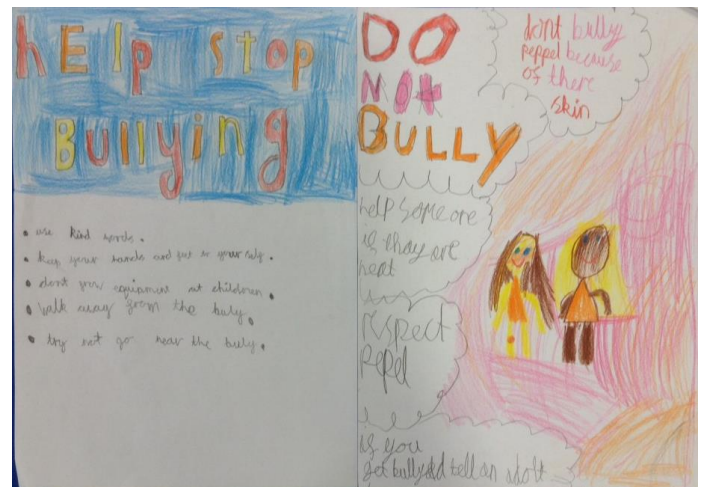 hElp stop
Bullying
• use kind words.
• keep your hands and feet to your self.
• dont equipment at children.
• walk away from the buly.
• try not go near the buly.
DO
NOt
BULLY
dont bully
peppel because
of there
skin
help someone
if thay are
heat
respect
Pepel
if you
get bullyd tell an